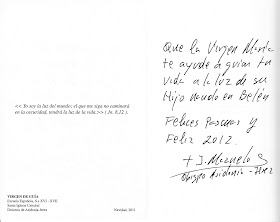 << Yo soy la luz del mundo; el que me siga no caminará
en la oscuridad, tendrá la luz de la vida >> ( Jn. 8,12 ).
VIRGEN DE GUÍA
Escuela Española, S. XVI - XVII
Santa Iglesia Catedral
Diócesis de Asidonia-Jerez
Navidad, 2011
Que la Virgen María
te ayude a guiar tu
vida a la luz de su
Hijo nacido en Belén
Felices Pascuas y
Feliz 2012.
+ J. Mazuelos
Obispo Asidonia - Jerez